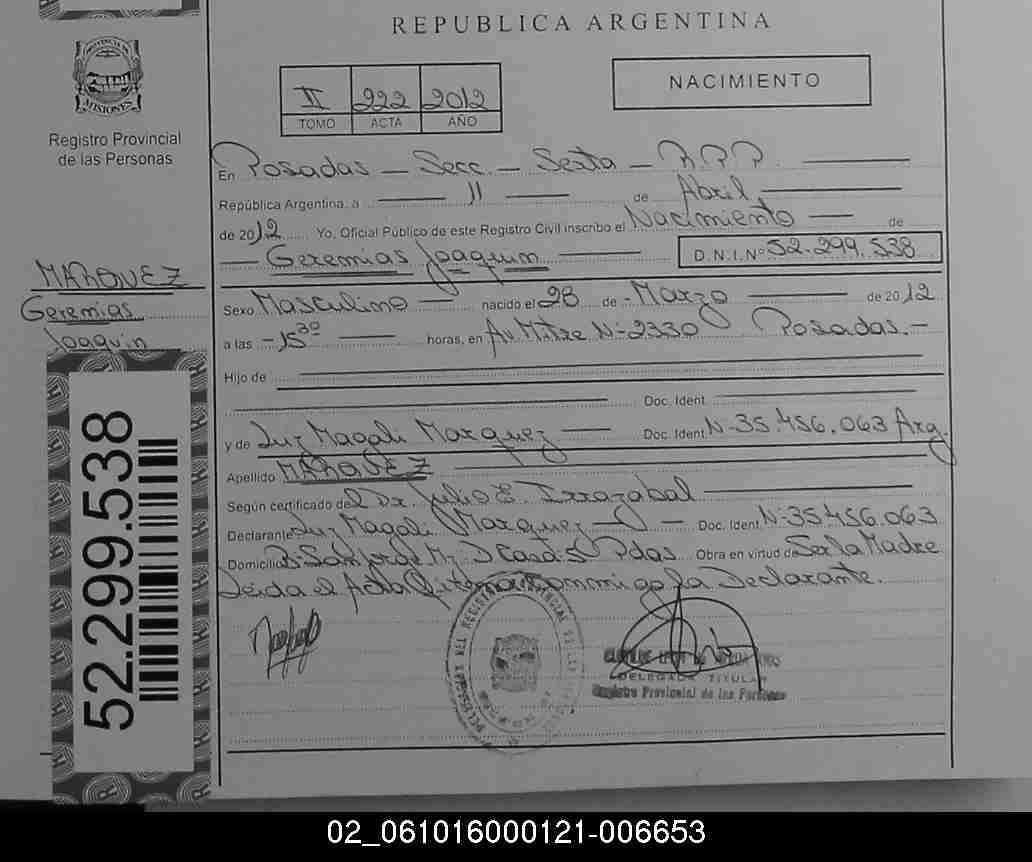 REPUBLICA ARGENTINA
PROVINCIA
MISIONES
Registro Provincial
de las Personas
II 222 2012
TOMO ACTA AÑO
NACIMIENTO
En Posadas - Secc. - Sexta - R.P.P.
República Argentina, a 11 de Abril
de 2012 Yo, Oficial Público de este Registro Civil inscribo el Nacimiento de
Geremias Joaquin D.N.I. Nº 52.299.538
MARQUEZ
Geremias
Joaquin
Sexo Masculino nacido el 28 de - Marzo de 2012
a las - 15 30 horas, en Av Mitre N-2330 Posadas.-
Hijo de
Doc. Ident.
y de Luz Magali Marquez Doc. Ident. N-35.456.063 Arg.
Apellido MARQUEZ
Según certificado del Dr. Julio E. Irrazabal
Declarante Luz Magali Marquez - Doc. Ident. N-35.456.063
Domicilio B San Jorge Mz D Casa 5 Pdas Obra en virtud de Ser la Madre
Leida el Acta la Declarante.
DELEGADA TITULAR
Registro Provincial de las Personas
52.299.538
02_061016000121-006653